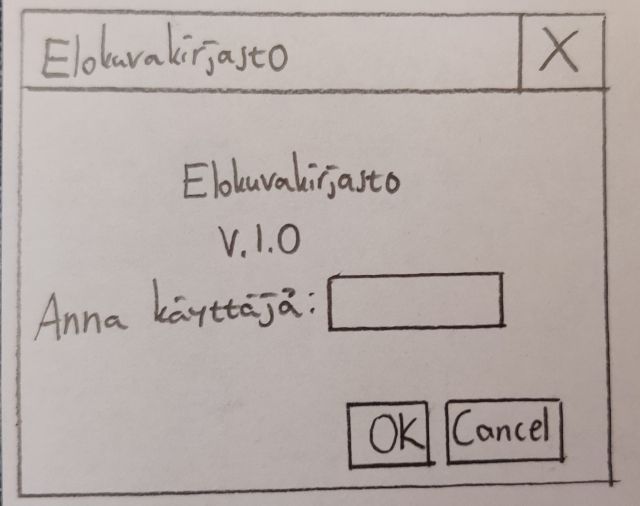 Elokuvakirjasto X
Elokuvakirjasto
V.1.0
Anna käyttäjä:
OK Cancel